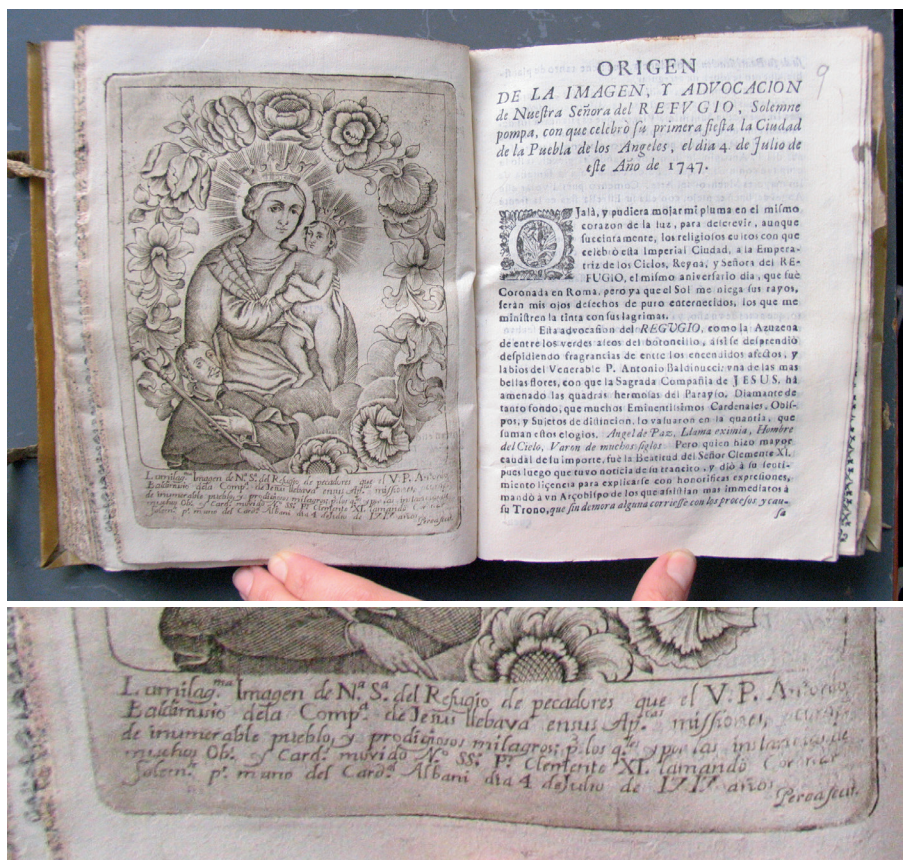 Lumilag.ma Imagen de N.a S.a del Refugio de pecadores que el V. P. Antonio
Baldinusio dela Comp.a de Jesus llebava ensus Ap.cas miſſiones,
de inumerable pueblo, y prodigiosos milagros; p. los q.les y por las instancias de
muchos Ob. y Card.s movido N.o SS. P.e Clemente XI. lamandò Coronar
Solem.te p.r mano del Card. Albani dia 4 deJulio de 1717 años
Perea ſcut.
9
ORIGEN
DE LA IMAGEN, Y ADVOCACION
de Nueſtra Señora del REFVGIO, Solemne
pompa, con que celebrò ſu primera fieſta la Ciudad
de la Puebla de los Angeles, el dia 4. de Julio de
eſte Año de 1747.
OJalà, y pudiera mojar mi pluma en el miſmo
corazon de la luz, para deſcrevir, aunque
ſuccintamente, los religioſos cultos con que
celebrò eſta Imperial Ciudad, a la Empera-
triz de los Cielos, Reyna, y Señora del RE-
FUGIO, el miſmo aniverſario dia, que fuè
Coronada en Roma, pero ya que el Sol me niega ſus rayos,
ſeràn mis ojos deſechos de puro enternecidos, los que me
miniſtren la tinta con ſus lagrimas.
Eſta advocaſion del REGUGIO, como la Azuzena
de entre los verdes aſeos del botoncillo, aſi ſe deſprendiò
deſpidiendo fragrancias de entre los encendidos afectos, y
labios del Venerable P. Antonio Baldinucci: vna de las mas
bellas flores, con que la Sagrada Compañia de JESUS, há
amenado las quadras hermoſas del Parayſo, Diamante de
tanto fondo, que muchos Eminentiſimos Cardenales, Obiſ-
pos, y Sujetos de diſtincion, lo valuaron en la quantia, que
ſuman eſtos elogios. Angel de Paz, Llama eximia, Hombre
del Cielo, Varon de muchos ſiglos. Pero quien hizo mayor
caudal de ſu importe, fuè la Beatitud del Señor Clemente XI.
pues luego que tuvo noticia de ſu tranſito, y diò à ſu ſenti-
miento licencia para explicarſe con honorificas expreſiones,
mandò à vn Arçobiſpo de los que aſiſtian mas immediatos à
ſu Trono, que ſin demora alguna corrieſſe con los proceſos y cau-
ſa
Lumilag.ma Imagen de N.a S.a del Refugio de pecadores que el V. P. Antonio
Baldinusio dela Comp.a de Jesus llebava ensus Ap.cas miſſiones,
de inumerable pueblo, y prodigiosos milagros; p. los q.les y por las instancias de
muchos Ob. y Card.s movido N.o SS. P.e Clemente XI. lamandò Coronar
Solem.te p.r mano del Card. Albani dia 4 deJulio de 1717 años
Perea ſcut.